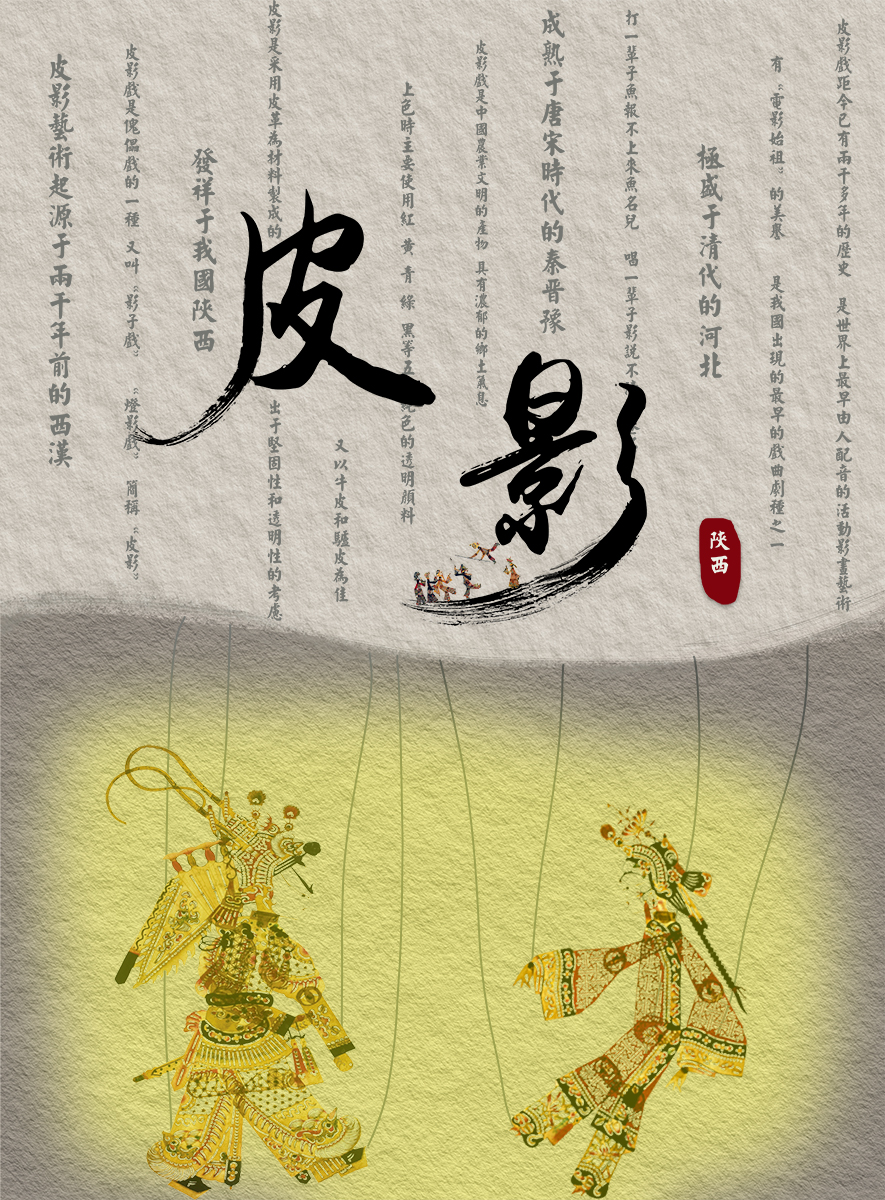 皮影藝術起源于兩千年前的西漢
皮影戲是傀儡戲的一種 又叫“影子戲” “燈影戲” 簡稱“皮影”
發祥于我國陝西
皮影是采用皮革為材料製成的 出于堅固性和透明性的考慮
又以牛皮和驢皮為佳
上色時主要使用紅 黃 青 綠 黑等五 純色的透明顏料
皮影戲是中國農業文明的產物 具有濃郁的鄉土氣息
成熟于唐宋時代的秦晉豫
打一輩子魚報不上來魚名兒 唱一輩子影説不
極盛于清代的河北
有“電影始祖”的美譽 是我國出現的最早的戲曲劇種之一
皮影戲距今已有兩千多年的歷史 是世界上最早由人配音的活動影畫藝術
皮影
陝西